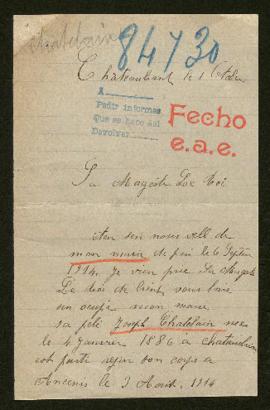 Chatelain
84730
Chateaubriant le 1 Octobre
A
Pedir informes
Que se hace así
Devolver
Fecho
e.a.e.
Sa Magesté Le Roi
sans nouvelle de
mon mari de puis le 6 Septem
1914. Je vien prie Sa Magesté
Le Roi de
mon mari
Joseph Chatelain nee
le 4 janvier 1886 à Chateaubriant
est partie son corps a
Ancenis le 3 Août, 1914